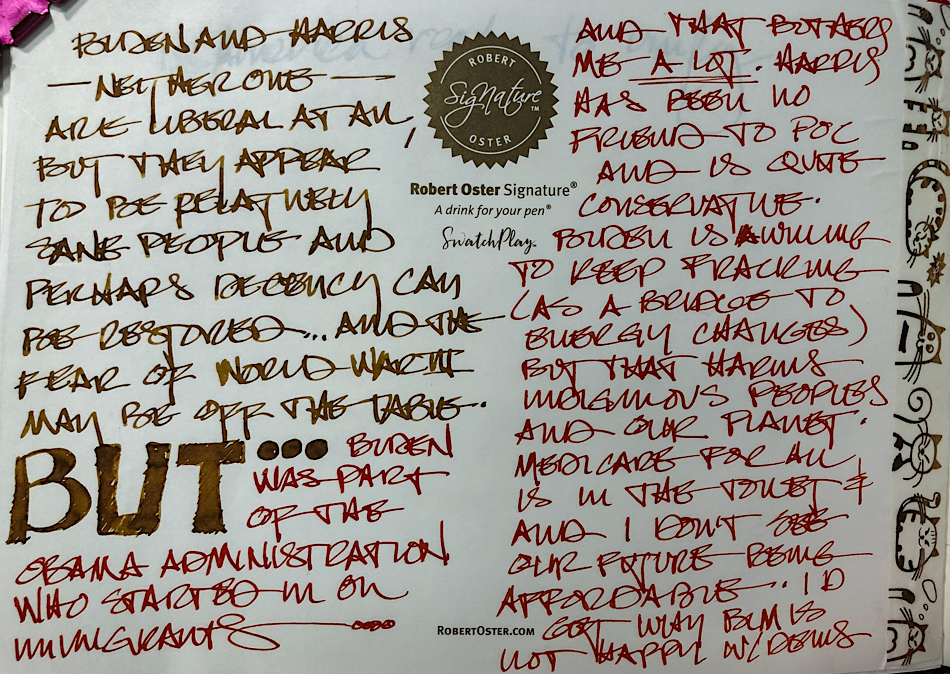 BIDEN AND HARRIS
— NEITHER ONE —
ARE LIBERAL AT ALL,
BUT THEY APPEAR
TO BE RELATIVELY
SANE PEOPLE AND
PERHAPS DECENCY CAN
BE RESTORED ... AND THE
FEAR OF WORLD WAR III
MAY BE OFF THE TABLE.
BUT... BIDEN
WAS PART
OF THE
OBAMA ADMINISTRATION
WHO STARTED IN ON
IMMIGRANTS
ROBERT
SigNature™
OSTER
Robert Oster Signature®
A drink for your pen®
SwatchPlay™
AND THAT BOTHERS
ME A LOT. HARRIS
HAS BEEN NO
FRIEND TO POC
AND IS QUITE
CONSERVATIVE.
BIDEN IS WILLING
TO KEEP FRACKING
(AS A BRIDGE TO
ENERGY CHANGES)
BUT THAT HARMS
INDIGENOUS PEOPLES
AND OUR PLANET.
MEDICARE FOR ALL
IS IN THE TOILET &
AND I DON'T SEE
OUR FUTURE BEING
AFFORDABLE.. I D
GET WHY BLM IS
NOT HAPPY W/DEMS
ROBERTOSTER.COM